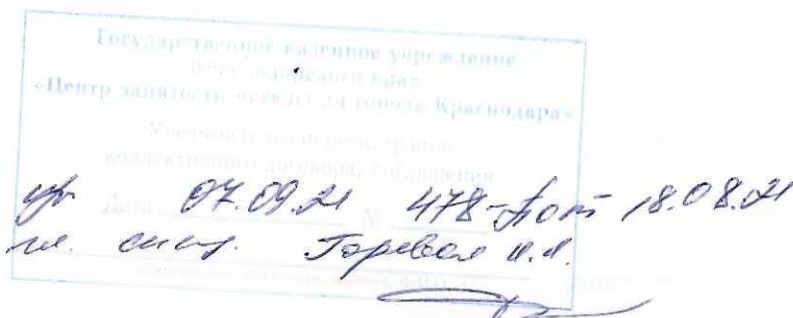 Государственное казенное учреждение
Краснодарского края
«Центр занятости населения города Краснодара»
Уведомительная регистрация
коллективного договора, соглашения
Дата 07.09.21 № 478- от 18.08.21
гл. спец. Горевая